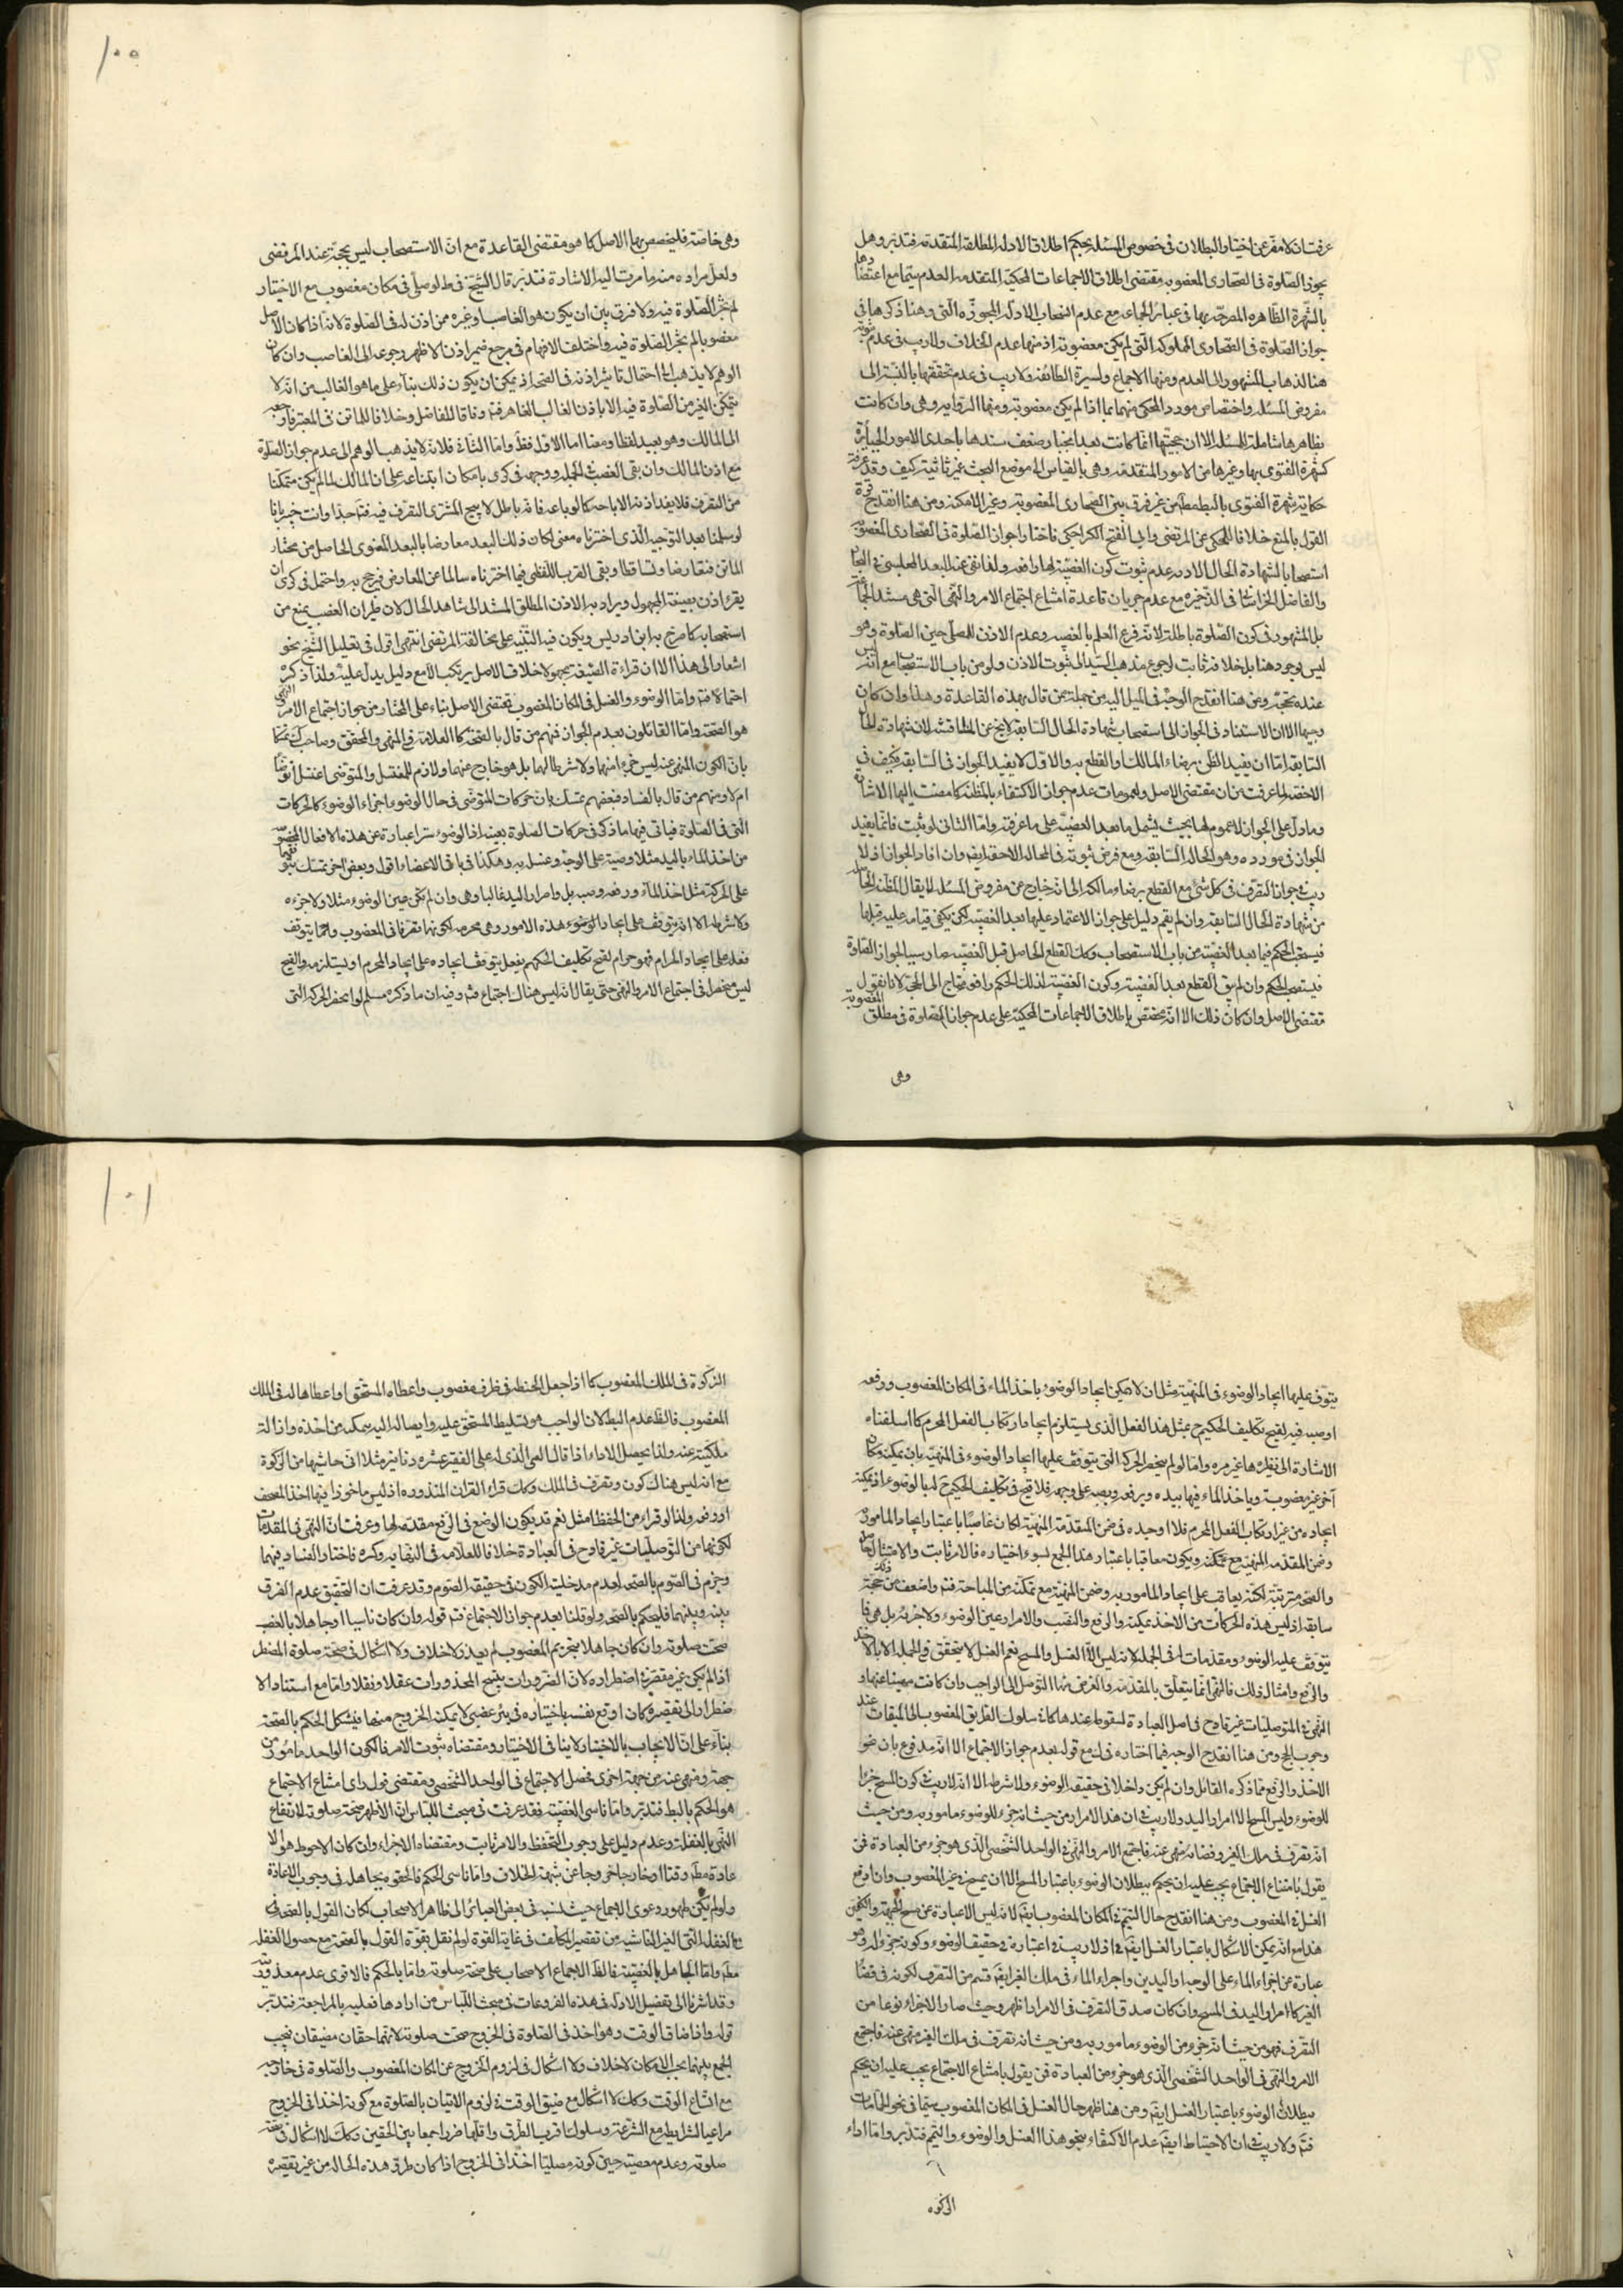 عرفت انه لا مفر عن اختيار البطلان فى خصوص المسئلة بحكم اطلاق الادلة المطلقة المتقدمة فتدبر وهل
يجوز الصلوة فى الصحارى المغصوبة مقتضى اطلاق الاجماعات المحكية المتقدمة العدم سيما مع اعتضادها
بالشهرة الظاهرة المصرح بها فى عبائر الجماعة مع عدم انصحاب الادلة المجوزة التى وهنا ذكرها فى
جواز الصلوة فى الصحارى المملوكة التى لم يكن مغصوبة اذ منها عدم الخلاف ولا ريب فى عدم ثبوته
هنا لذهاب المشهور الى العدم ومنها الاجماع ولسيرة الطائفة ولا ريب فى عدم تحققها بالنسبة الى
مفروض المسئلة واختصاص مورد المحكى منهما بما اذا لم يكن مغصوبة ومنها الرواية وهى وان كانت
بظاهرها شاملة للمسئلة الا ان حجيتها انما كانت بعد انجبار ضعف سندها باحدى الامور الجابرة
كشهرة الفتوى بها وغيرها من الامور المتقدمة وهى بالقياس الى موضع البحث غير ثابتة كيف وقد عرفت
حكاية شهرة الفتوى بالبطلان من غير فرق بين الصحارى المغصوبة وغير الامكنة ومن هنا انقدح قوة
القول بالمنع خلافا للمحكى عن المرتضى وابى الفتح الكراجكى فاختارا جواز الصلوة فى الصحارى المغصوبة
استصحابا لشهادة الحال الاذنية عدم ثبوت كون الغصبية لها رافعة ولفا نفى عنه البعد المجلسى فى البحار
والفاضل الخراسانى فى الذخيرة مع عدم جريان قاعدة امتناع اجتماع الامر والنهى التى هى مستند الجماعة
بل المشهور فى كون الصلوة باطلة لانه فرع العلم بالغصبية وعدم الاذن للمصلى حين الصلوة وهو
ليس بوجود هنا بل خلافه ثابت لرجوع مذهب السيد الى ثبوت الاذن ولو من باب الاستصحاب مع انه ليس
عنده بحجة ومن هنا انقدح الوجه فى الميل اليه من جملة ممن قال بهذه القاعدة وهذا وان كان
وجيها الا ان الاستناد فى الجواز الى استصحاب شهادة الحال السابقة لا يخ عن المناقشة لان شهادة الحال
السابقة اما ان يفيد الظن برضاء المالك او القطع به والاول لا يفيد الجواز فى السابقة فكيف فى
اللاحقة لما عرفت من ان مقتضى الاصل والعمومات عدم جواز الاكتفاء بالمظنة كما مضت اليها الاشارة
وما دل على الجواز لا عموم لها بحيث يشمل ما بعد الغصبية على ما عرفت واما الثانى لو ثبت فانما يفيد
الجواز فى مورده وهو الحالة السابقة ومع فرض ثبوته فى الحالة اللاحقة ايضا وان افاد الجواز اذ لا
ريب فى جواز التصرف فى كل شئ مع القطع برضاء مالكه الا انه خارج عن مفروض المسئلة لا يقال المظنة الحاصلة
من شهادة الحال السابقة وان لم يقم دليل على جواز الاعتماد عليها بعد الغصبية لكن يكفى قيامه عليه قبلها
فيستصحب الحكم فيما بعد الغصبية من باب الاستصحاب وكك القطع الحاصل قبل الغصبية صار سببا لجواز الصلوة
فيستصحب الحكم وان لم يبق القطع بعد الغصبية وكون الغصبية لذلك الحكم رافعة يحتاج الى الحجة لانا نقول
مقتضى الاصل وان كان ذلك الا انه مختص باطلاق الاجماعات المحكية على عدم جواز الصلوة فى مطلق المغصوبة
وهى
١٠٠
وهى خاصة فليخصص بها الاصل كما هو مقتضى القاعدة مع ان الاستصحاب ليس بحجة عند المرتضى
ولعل مراده منه ما مرت اليه الاشارة فتدبر قال الشيخ فى ط لو صلى فى مكان مغصوب مع الاختيار
لم تجز الصلوة فيه ولا فرق بين ان يكون هو الغاصب او غيره ممن اذن له فى الصلوة لانه اذا كان الاصل
مغصوبا لم تجز الصلوة فيه واختلف الافهام فى مرجع ضمير اذن الاظهر رجوعه الى الغاصب وان كان
الوهم لا يذهب الى احتمال تاثير اذنه فى الصحة اذ يمكن ان يكون ذلك بناء على ما هو الغالب من انه لا
يتمكن الغير من الصلوة فيه الا باذن الغالب القاهر فتم وفاقا للفاضل وخلافا للماتن فى المعتبر فارجعه
الى المالك وهو بعيد لفظا ومعنا اما الاول فظ واما الثانى فلانه لا يذهب الوهم الى عدم جواز الصلوة
مع اذن المالك وان بقى الغصب فى الجملة ووجهه فى كرى بامكان ابتناءه على ان المالك لما لم يكن متمكنا
من التصرف فلا يفيد اذنه الاباحة كما لو باعه فانه باطل لا يبيح المشترى التصرف فيه فتم جدا وانت خبير بانا
لو سلمنا بعد التوجيه الذى اخترناه معنى لكان ذلك البعد معارضا بالبعد المعنوى الحاصل من مختار
الماتن فتعارضا وتساقطا وبقى القرب اللفظى فيما اخترناه سالما عن المعارض فيرجح به واحتمل فى كرى ان
يقرء اذن بصيغة المجهول ويراد به الاذن المطلق المستند الى شاهد الحال لان طريان الغصب يمنع من
استصحابه كما صرح به ابن ادريس ويكون فيه التنبيه على مخالفة المرتضى انتهى اقول فى تعليل الشيخ نحو
اشعار الى هذا الا ان قراءة الصيغة مجهولا خلاف الاصل يرتكب الا مع دليل يدل عليه ولذا ذكره
احتمالا فتم واما الوضوء والغسل فى المكان المغصوب فمقتضى الاصل بناء على المختار من جواز اجتماع الامر والنهى
هو الصحة واما القائلون بعدم الجواز فمنهم من قال بالصحة كالعلامة فى المنتهى والمحقق وصاحب ك تمسكا
بان الكون المنهى عنه ليس جزء منها ولا شرطا لها بل هو خارج عنها ولازم للمغتسل والمتوضى اغتسل او توضأ
ام لا ومنهم من قال بالفساد فبعضهم تمسك بان حركات المتوضى فى حال الوضوء اجزاء الوضوء كالحركات
التى فى الصلوة فياتى فيها ما ذكر فى حركات الصلوة بعينه اذ الوضوء شرعا عبارة عن هذه الافعال المخصوصة
من اخذ الماء باليد مثلا وصبه على الوجه وغسله به وهكذا فى باقى الاعضاء اقول وبعض اخر تمسك بتوقفها
على الحركة مثل اخذ الماء ورفعه وصبه بل وامرار اليد غالبا وهى وان لم تكن عين الوضوء مثلا ولا جزءه
ولا شرطه الا انه يتوقف على ايجاد الوضوء هذه الامور وهى محرمة لكونها تصرفا فى المغصوب وما يتوقف
فعله على ايجاد الحرام فهو حرام لقبح تكليف الحكيم بفعل يتوقف ايجاده على ايجاد المحرم او يستلزمه والقبح
ليس منحصرا فى اجتماع الامر والنهى حتى يقال انه ليس هناك اجتماع فتم وفيه ان ما ذكره مسلم لو انحصر الحركة التى
يتوقف عليها ايجاد الوضوء فى المنهية مثل ان لا يمكن ايجاد الوضوء باخذ الماء فى المكان المغصوب ورفعه
او صبه فيه لقبح تكليف الحكيم ح بمثل هذا الفعل الذى يستلزم ايجاده ارتكاب الفعل المحرم كما اسلفناه
الاشارة الى نظيره ها غير مرة واما لو لم ينحصر الحركة التى يتوقف عليها ايجاد الوضوء فى المنهية بان يمكنه مكان
اخر غير مغصوب وياخذ الماء فيها بيده ويرفعه ويصبه على وجهه فلا قبح فى تكليف الحكيم ح له بالوضوء اذ يمكنه
ايجاده من غير ارتكاب الفعل المحرم فلو اوجده فى ضمن المقدمة المنهية لكان عاصيا باعتبار ايجاد المامور به
وضمن المقدمة المنهية مع تمكنه ويكون معاقبا باعتبار هذا الجمع لسوء اختياره فالامر ثابت والامتثال حاصل
والصحة مترتبة لكنه يعاقب على ايجاد المامور به وضمن المنهية مع تمكنه من المباحة فتم واضعف من حجة
سابقه اذ ليس هذه الحركات من الاخذ يمكنه والرفع والصب والامرار عين الوضوء ولا جزئه بل هى مما
يتوقف عليه الوضوء ومقدماته فى الجملة لانه ليس الا الغسل والمسح نعم الغسل لا يتحقق فى الجملة الا بالاخذ
والرفع وامثال ذلك فالنهى انما يتعلق بالمقدمة والغرض منها التوصل الى الواجب وان كانت منهيا عنها و
النهى فى التوصليات غير قادح فى اصل العبادة لسقوط عندها كما فى سلوك الطريق المغصوب الى الميقات عند
وجوب الحج ومن هنا انقدح الوجه فيما اختاره فى ك مع قوله بعدم جواز الاجتماع الا انه مدفوع بان نحو
الاخذ والرفع مما ذكره القائل وان لم يكن داخلا فى حقيقة الوضوء ولا شرطه الا انه لا ريب فى كون المسح جزءا
للوضوء وليس المسح الا امرار اليد ولا ريب فى ان هذا الامرار من حيث انه جزء للوضوء مامور به ومن حيث
انه تصرف فى ملك الغير وفضائه منهى عنه فاجتمع الامر والنهى فى الواحد الشخصى الذى هو جزء من العبادة فمن
يقول بامتناع الاجتماع يجب عليه ان يحكم ببطلان الوضوء باعتبار المسح الا ان يمسح فى غير المغصوب وان اوقع
الغسل فى المغصوب ومن هنا انقدح حال التيمم فى المكان المغصوب ايضا لانه ليس الا عبارة عن مسح الجبهة والكفين
هذا مع انه يمكن الاشكال باعتبار الغسل ايضا اذ لا ريب فى اعتباره فى حقيقة الوضوء وكونه جزءا له وهو
عبارة عن اجراء الماء على الوجه واليدين واجراء الماء فى ملك الغير ايضا قسم من التصرف لكونه فى فضاء
الغير كامرار اليد فى المسح وان كان صدق التصرف فى الامرار اظهر وحيث صار الاجراء نوعا من
التصرف فهو من حيث انه جزء من الوضوء مامور به ومن حيث انه تصرف فى ملك الغير منهى عنه فاجتمع
الامر والنهى فى الواحد الشخصى الذى هو جزء من العبادة فمن يقول بامتناع الاجتماع يجب عليه ان يحكم
ببطلان الوضوء باعتبار الغسل ايضا ومن هنا ظهر حال الغسل فى المكان المغصوب سيما فى نحو الحمامات
فتم ولا ريب فى ان الاحتياط ايضا عدم الاكتفاء بنحو هذا الغسل والوضوء والتيمم فتدبر واما اداء
الزكوة
١٠١
الزكوة فى الملك المغصوب كما اذا جعل الحنطة فى ظرف مغصوب واعطاه المستحق او اعطاها له فى الملك
المغصوب فالظ عدم البطلان لان الواجب هو تسليط المستحق عليه وايصاله اليه بتمكنه من اخذه وازالة
ملكيته عنه ولذا يحصل الاداء اذا قال الغنى الذى له على الفقير عشرة دنانير مثلا انى حاسبتها من الزكوة
مع انه ليس هناك كون وتصرف فى الملك وكك قراءة القران المنذورة اذ ليس ماخوذا فيها اخذ المصحف
او رفعه ولذا لو قراء من الحفظ امتثل نعم قد يكون الوضع فى الرفع مقدمة لها وعرفت ان النهى فى المقدمات
لكونها من التوصليات غير قادح فى العبادة خلافا للعلامة فى النهاية وكره فاختار الفساد فيهما
وجزم فى الصوم بالصحة لعدم مدخلية الكون فى حقيقة الصوم وقد عرفت ان التحقيق عدم الفرق
بينه وبينهما فليحكم بالصحة ولو قلنا بعدم جواز الاجتماع فتم قوله وان كان ناسيا او جاهلا بالغصبية
صحت صلوته وان كان جاهلا بتحريم المغصوب لم يعذر لا خلاف ولا اشكال فى صحة صلوة المضطر
اذا لم يكن عن تقصيره اضطراره لان الضرورات تبيح المحذورات عقلا ونقلا واما مع استناد الا
ضطرار الى تقصيره كان اوقع نفسه باختياره فى بئر غصبى لا يمكنه الخروج منها فيشكل الحكم بالصحة
بناء على ان الايجاب بالاختيار لا ينافى الاختيار ومقتضاه ثبوت الامر فالكون الواحد مامور من
جهة ومنهى عنه من جهة اخرى فحصل الاجتماع فى الواحد الشخصى ومقتضى قول راى امتناع الاجتماع
هو الحكم بالبطلان فتدبر واما ناسى الغصبية فقد عرفت فى مبحث اللباس ان الاظهر صحة صلوته لارتفاع
النهى بالغفلة وعدم دليل على وجوب التحفظ والامر ثابت ومقتضاه الاجزاء وان كان الاحوط هو الا
عادة مط وقتا او خارجا خروجا عن شبهة الخلاف واما ناسى الحكم فالحقوه بجاهله فى وجوب الاعادة
ولو لم يكن ظهور دعوى الاجماع حيث نسبه فى بعض العبائر الى ظاهر الاصحاب لكان القول بالصحة فى
الغفلة التى الغير الناشية من تقصير المكلف فى غاية القوة لو لم نقل بقوة القول بالصحة مع حصول الغفلة
مط واما الجاهل بالغصبية فالظ الاجماع الاصحاب على صحة صلوته واما بالحكم فالاقوى عدم معذوريته
وقد اشرنا الى تفصيل الادلة فى هذه الفروعات فى مبحث اللباس من ارادها فعليه بالمراجعة فتدبر
قوله واذا ضاق الوقت وهو اخذ فى الصلوة فى الخروج صحت صلوته لانهما حقان مضيقان فيجب
الجمع بينهما بحسب الامكان لا خلاف ولا اشكال فى لزوم الخروج عن المكان المغصوب والصلوة فى خارجه
مع اتساع الوقت وكك لا اشكال مع ضيق الوقت فى لزوم الاتيان بالصلوة مع كونه اخذا فى الخروج
مراعيا للشرايط مع الشرعة وسلوك اقرب الطرق واقلها ضررا جمعا بين الحقين وكك لا اشكال فى صحة
صلوته وعدم معصيته حين كونه مصليا اخذا فى الخروج اذا كان طرق هذه الحالة من غير تقصيره